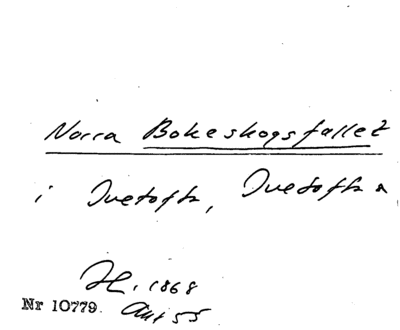 Norra Bokeskogsfallet
i Ivetofta, Ivetofta
H. 1868
Nr 10779. Akt 55